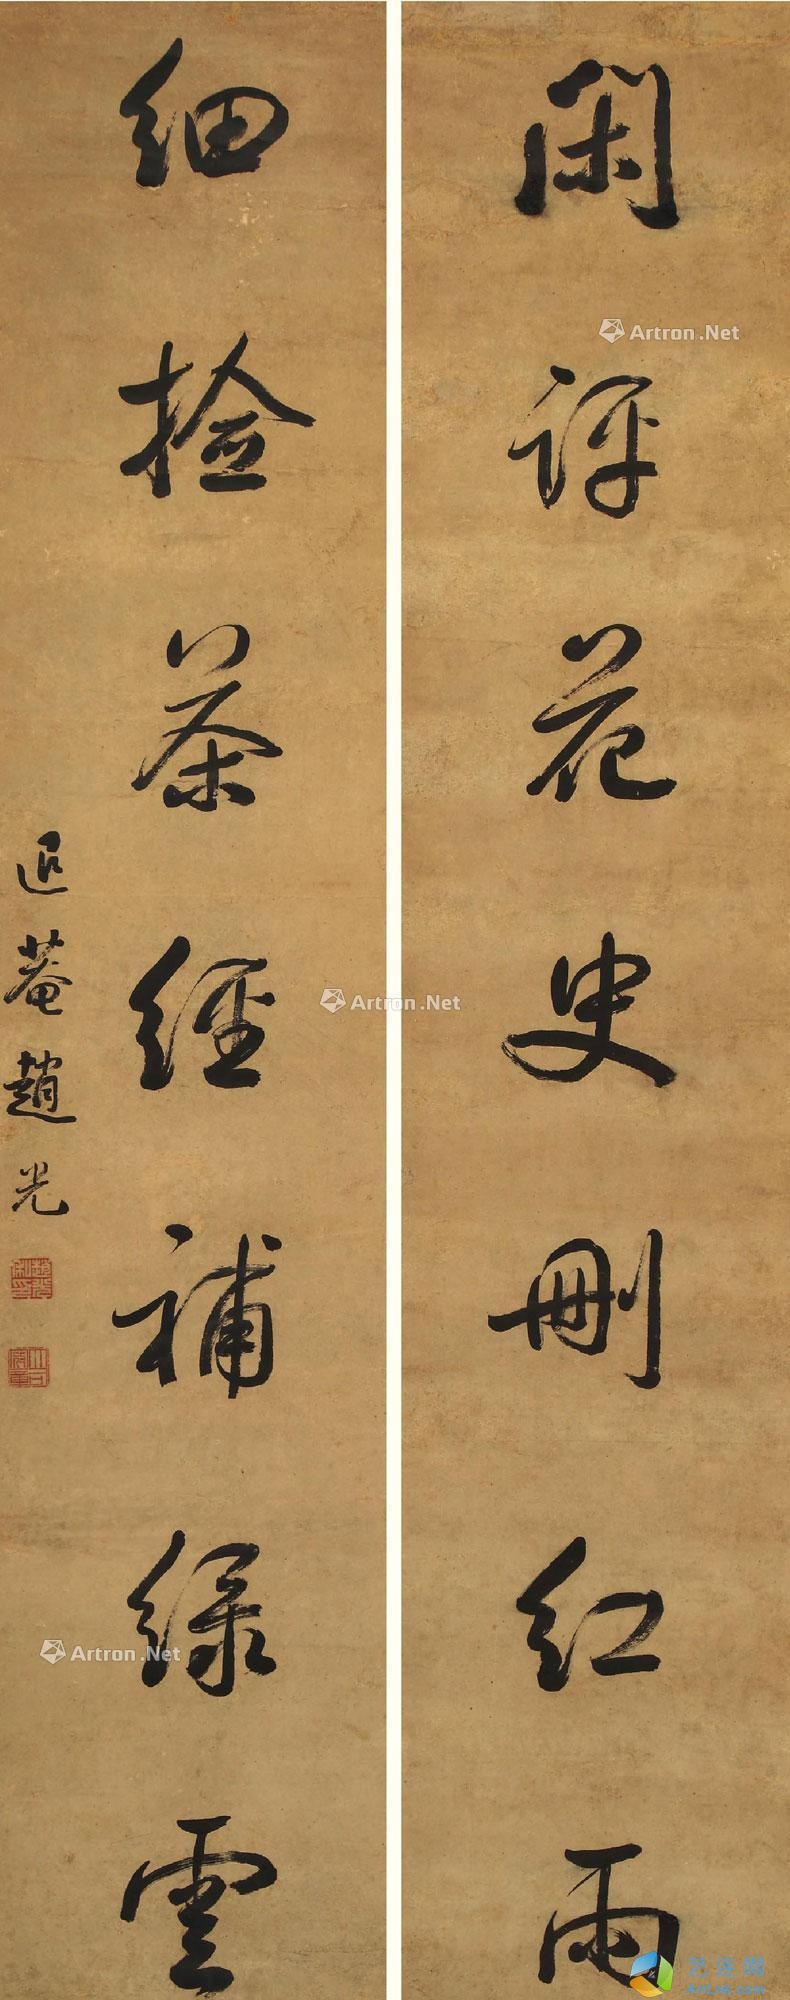 閑評花史刪红雨
細捡茶經補緑雲
退菴趙光
Artron.Net
Artron.Net
Artron.Net